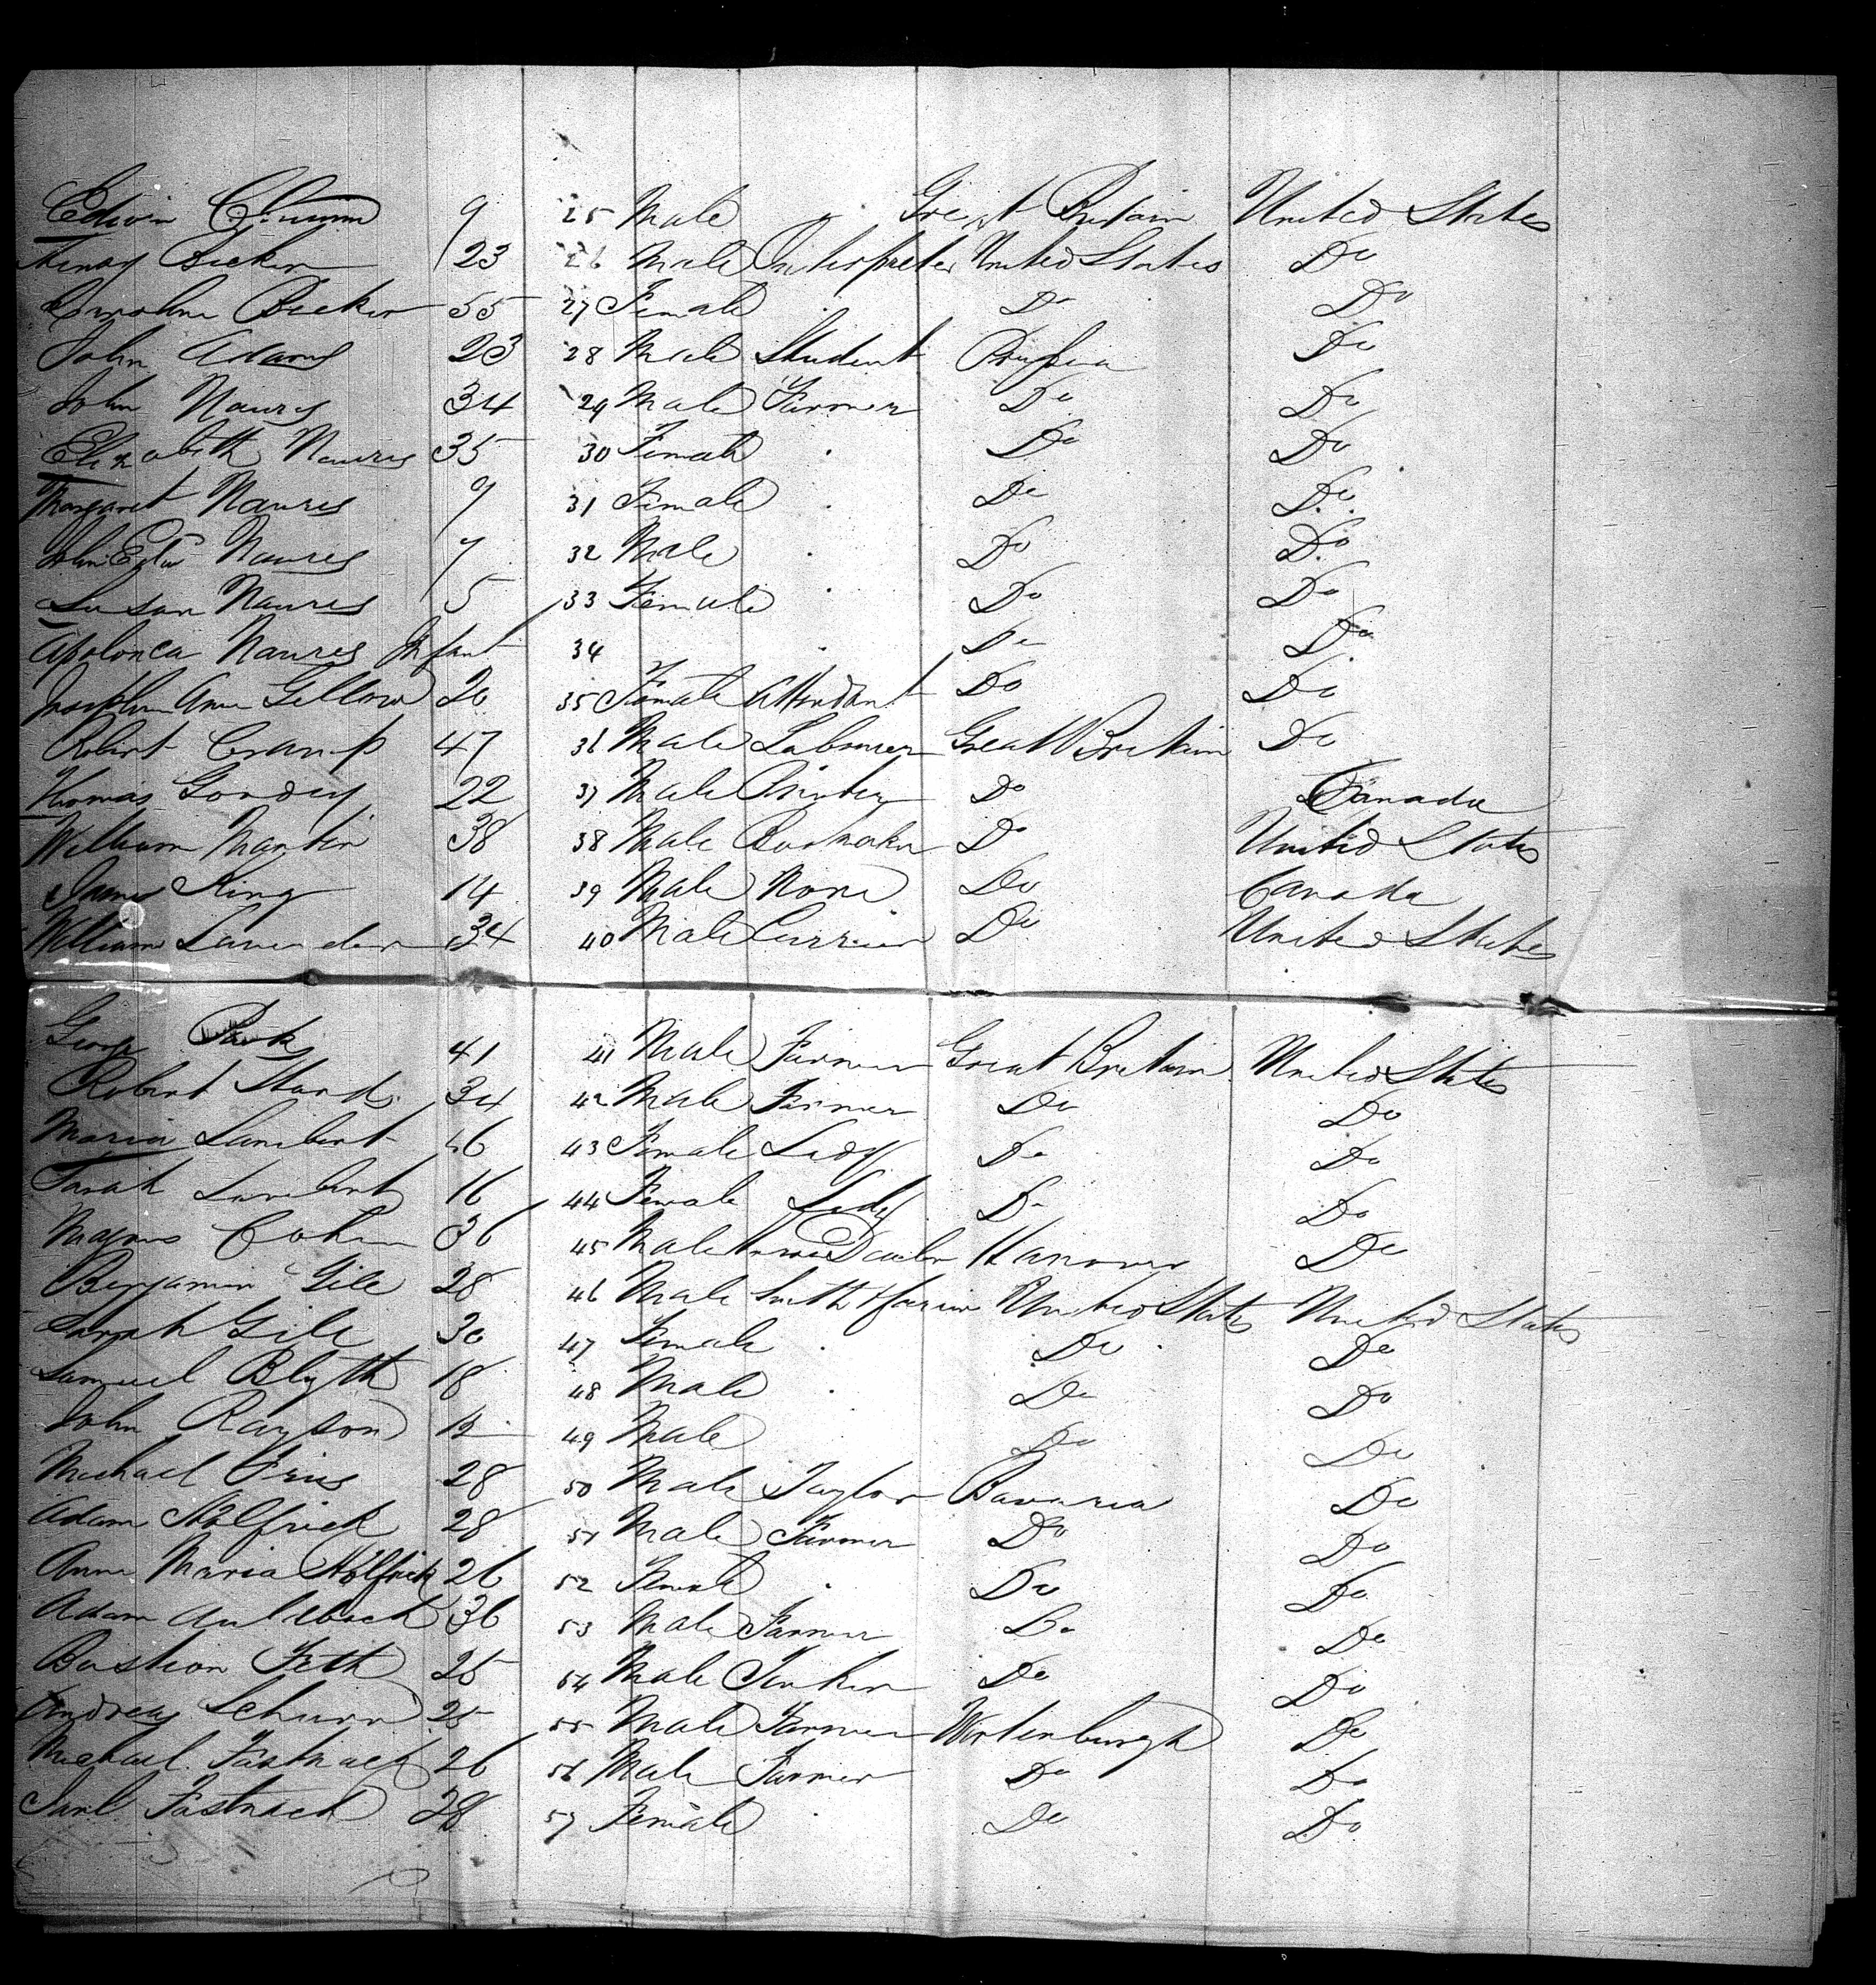 Edwin 9 25 Male Great Britain United States
Henry Becker 23 26 Male Interpreter United States Do
Caroline Becker 55 27 Female Do Do
John Adams 23 28 Male Student Prussia Do
John Naures 34 29 Male Farmer Do Do
Elizabeth Naures 35 30 Female Do Do
Margaret Naures 9 31 Female Do Do
John Naures 7 32 Male Do Do
Susan Naures 5 33 Female Do Do
Apolonca Naures Infant 34 Do Do
Ann Gellow 20 35 Female Attendant Do Do
Robert Cramp 47 36 Male Labourer Great Britain Do
Thomas 22 37 Male Do Canada
William Martin 38 38 Male Do United States
James King 14 39 Male None Do Canada
William Lavender 34 40 Male Currier Do United States
George 41 41 Male Farmer Great Britain United States
Robert 34 42 Male Farmer Do Do
Maria Lambert 46 43 Female Lady Do Do
Sarah Lambert 16 44 Female Lady Do Do
Cohen 36 45 Male Hanover Do
Benjamin Gile 28 46 Male United States United States
Sarah Gile 30 47 Female Do Do
Samuel Blyth 18 48 Male Do Do
John Rayson 12 49 Male Do Do
Michael 28 50 Male Taylor Bavaria Do
Adam 28 51 Male Farmer Do Do
Anna Maria 26 52 Female Do Do
Adam 36 53 Male Farmer Do Do
Bastian Feth 25 54 Male Do Do
Andreas Schurr 25 55 Male Farmer Wirtenburgh Do
Michael Fastnach 26 56 Male Farmer Do Do
Fastnach 28 57 Female Do Do